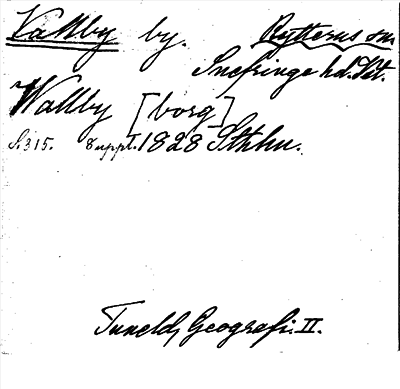 Vallby by. Rytterns sn.
Snefringe hd. Vstl.
Wallby [borg]
S. 315. 8 uppl. 1828 Sthlm.
Tuneld, Geografi. II.